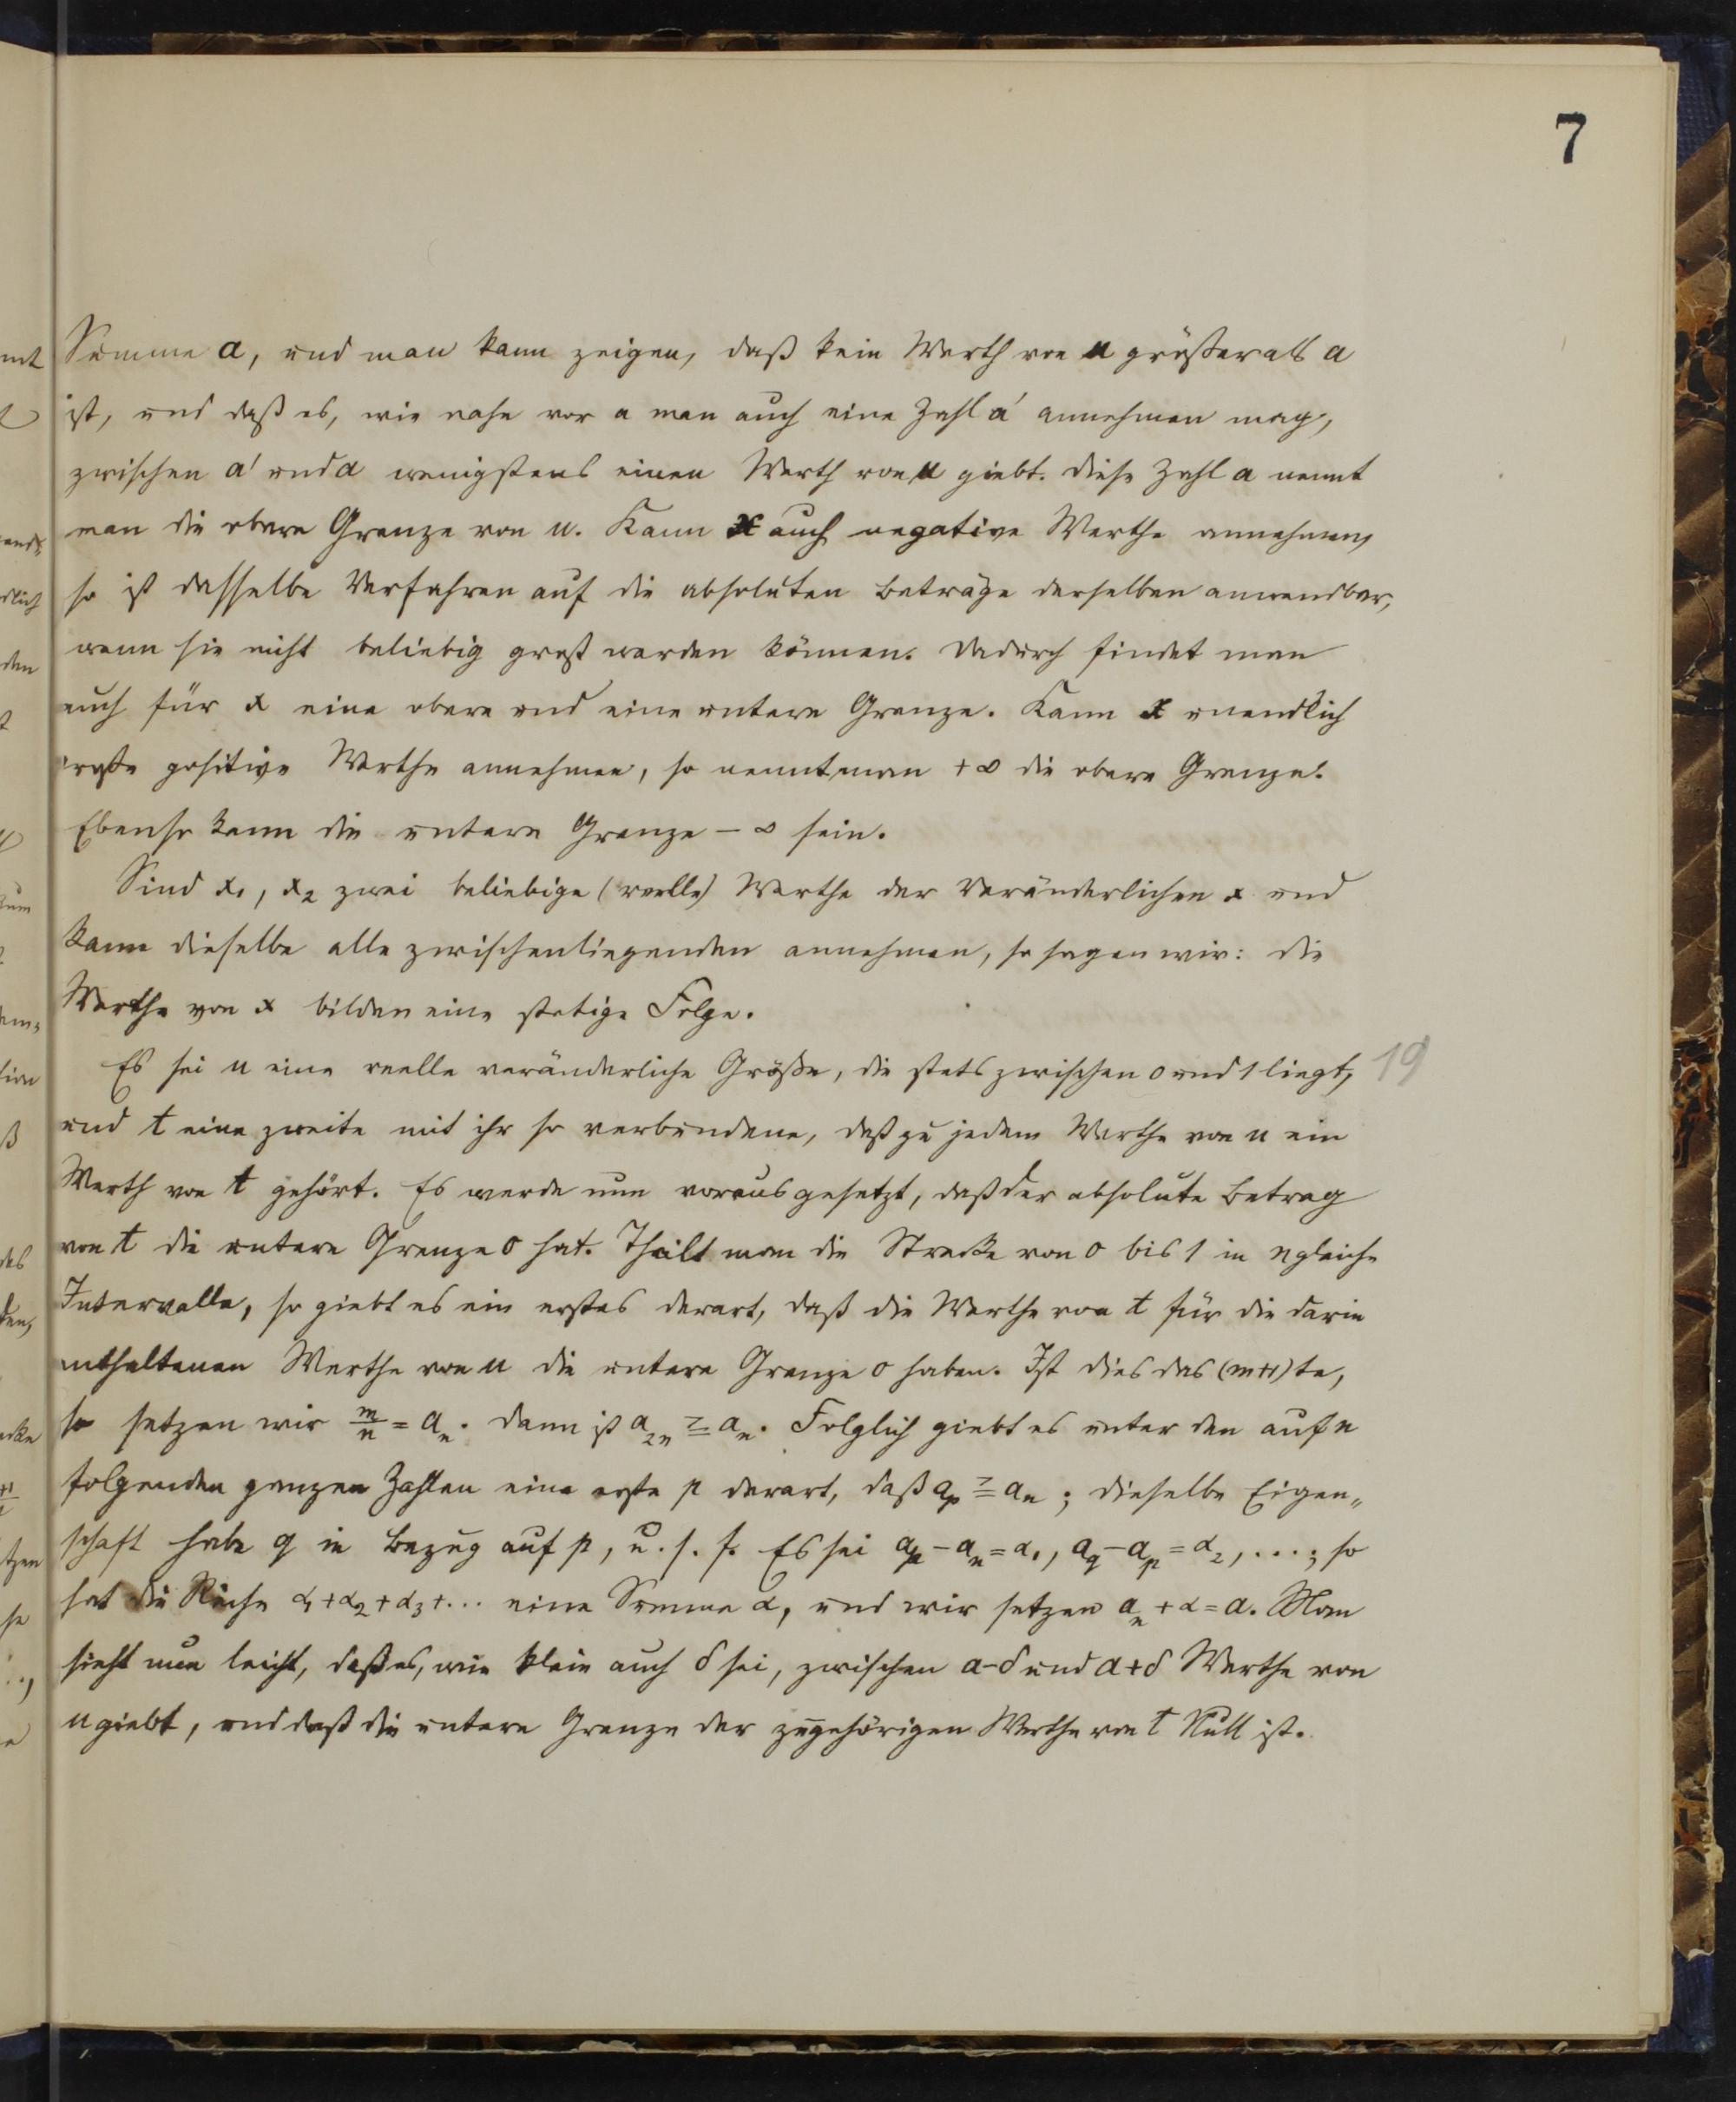 7
Summe a, und man kann zeigen, daß kein Werth von u größer als a
ist, und daß es, wie nahe vor a man auch eine Zahl a' annehmen mag,
zwischen a' und a wenigstens einen Werth von u giebt. Diese Zahl a nennt
man die obere Grenze von u. Kann x auch negative Werthe annehmen,
so ist dasselbe Verfahren auf die absoluten Beträge derselben anwendbar,
wenn sie nicht beliebig groß werden können. Dadurch findet man
auch für x eine obere und eine untere Grenze. Kann x unendlich
große positive Werthe annehmen, so nennt man +∞ die obere Grenze.
Ebenso kann die untere Grenze -∞ sein.
Sind x₁, x₂ zwei beliebige (reelle) Werthe der Veränderlichen x und
kann dieselbe alle zwischenliegenden annehmen, so sagen wir: die
Werthe von x bilden eine stetige Folge.
Es sei u eine reelle veränderliche Größe, die stets zwischen 0 und 1 liegt, 19
und t eine zweite mit ihr so verbundene, daß zu jedem Werthe von u ein
Werth von t gehört. Es werde nun vorausgesetzt, daß der absolute Betrag
von t die untere Grenze 0 hat. Theilt man die Strecke von 0 bis 1 in n gleiche
Intervalle, so giebt es ein erstes derart, daß die Werthe von t für die darin
enthaltenen Werthe von u die untere Grenze 0 haben. Ist dies das (m+1)te,
so setzen wir m/n = aₙ. Dann ist a₂ₙ ≧ aₙ. Folglich giebt es unter den auf n
folgenden ganzen Zahlen eine erste p derart, daß aₚ ≧ aₙ; dieselbe Eigen„
schaft habe q in Bezug auf p, u. s. f. Es sei aₚ - aₙ = α₁, a_q - aₚ = α₂, ....; so
hat die Reihe α₁+α₂+α₃+... eine Summe α, und wir setzen aₙ + α = a. Man
sieht nun leicht, daß es, wie klein auch δ sei, zwischen a-δ und a+δ Werthe von
u giebt, und daß die untere Grenze der zugehörigen Werthe von t Null ist.